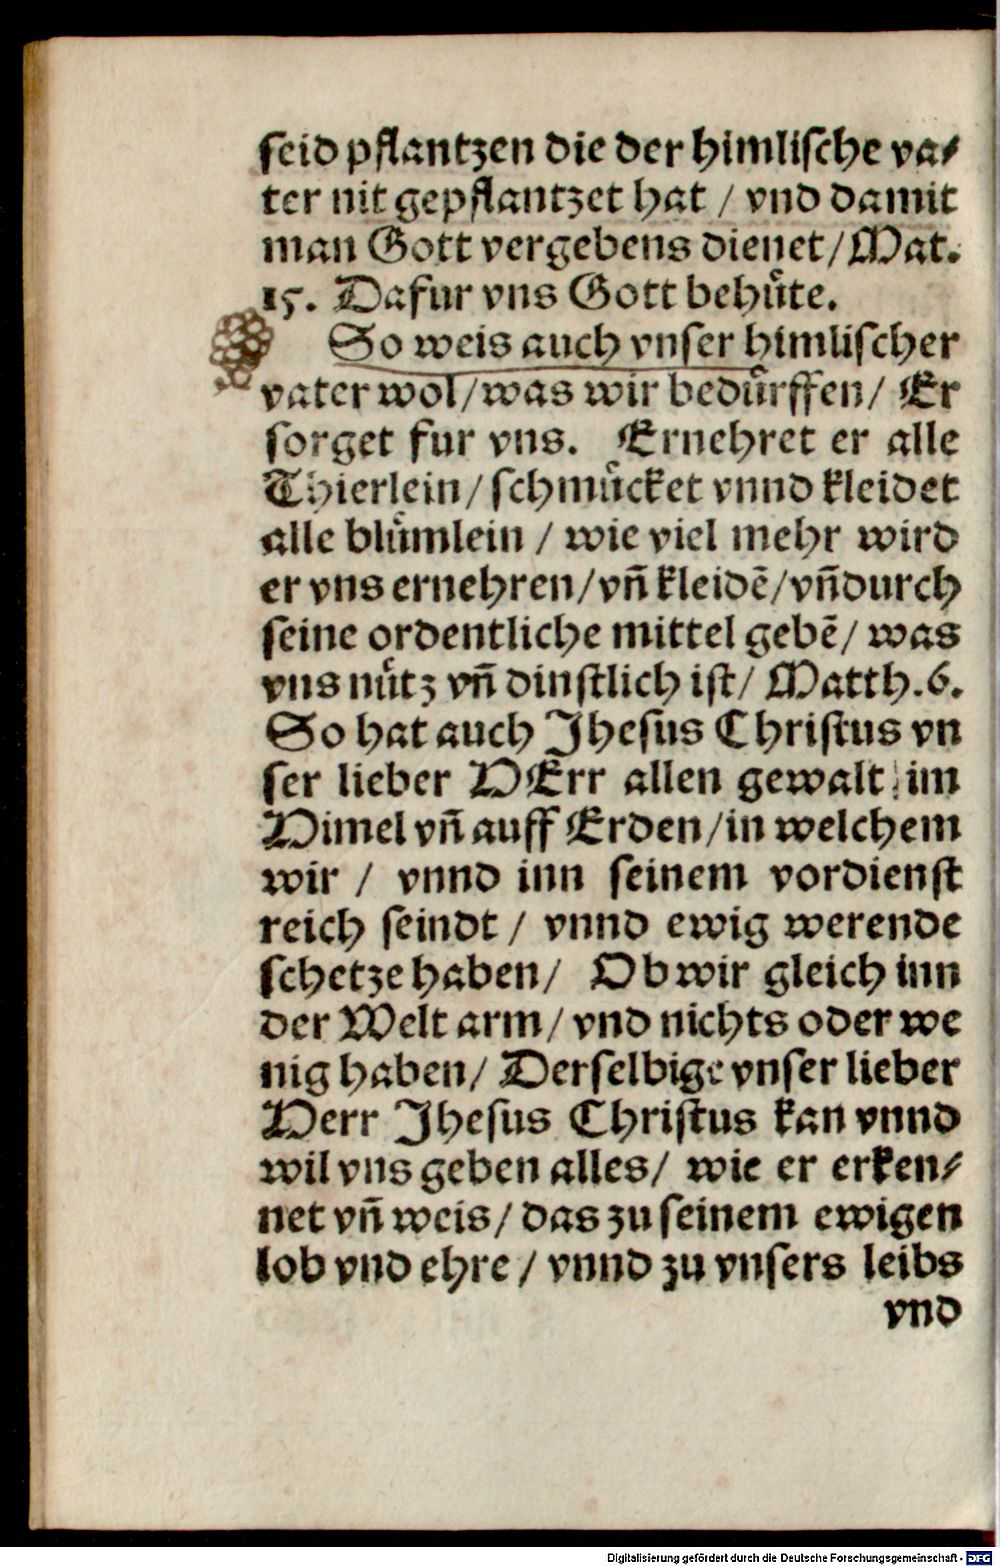 seid pflantzen die der himlische va⸗
ter nit gepflantzet hat / vnd damit
man Gott vergebens dienet/Mat.
15. Dafur vns Gott behuͤte.
So weis auch vnser himlischer
vater wol/was wir beduͤrffen/ Er
sorget fur vns. Ernehret er alle
Thierlein/schmuͤcket vnnd kleidet
alle bluͤmlein / wie viel mehr wird
er vns ernehren/vn̄ kleidē/vn̄durch
seine ordentliche mittel gebē/ was
vns nuͤtz vn̄ dinstlich ist/ Matth.6.
So hat auch Jhesus Christus vn
ser lieber HErr allen gewalt im
Himel vn̄ auff Erden/in welchem
wir / vnnd inn seinem vordienst
reich seindt / vnnd ewig werende
schetze haben/ Ob wir gleich inn
der Welt arm/vnd nichts oder we
nig haben/ Derselbige vnser lieber
Herr Jhesus Christus kan vnnd
wil vns geben alles/ wie er erken⸗
net vn̄ weis/das zu seinem ewigen
lob vnd ehre/vnnd zu vnsers leibs
vnd
Digitalisierung gefördert durch die Deutsche Forschungsgemeinschaft - DFG